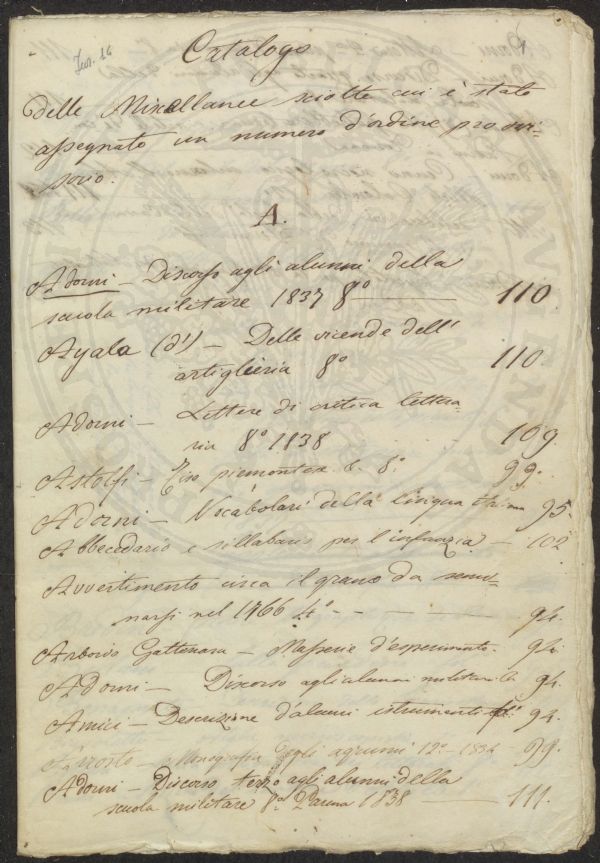 Catalogo
delle Miscellanee sciolte cui è stato
assegnato un numero d'ordine provvi-
sorio.
A.
Adorni - Discorso agli alunni della
scuola militare 1837 8° 110
Ayala (d') - Delle vicende dell'
artiglieria 8° 110
Adorni - Lettere di critica lettera-
ria 8° 1838 109
Astolfi - piemontese 8° 99.
Adorni - Vocabolari della lingua 95.
Abbecedario e sillabario per l'infanzia - 102
Avvertimento circa il grano da semi-
narsi nel 1766 4° - - 94.
Arborio Gattinara - Masserie d'esperimento. 94.
Adorni - Discorso agli alunni militari 94.
Amici - Descrizione d'alcuni istrumenti 94.
Arrosto - Monografia degli agrumi 12° - 1834 99.
Adorni - Discorso terzo agli alunni della
scuola militare 8° Parma 1838 111.